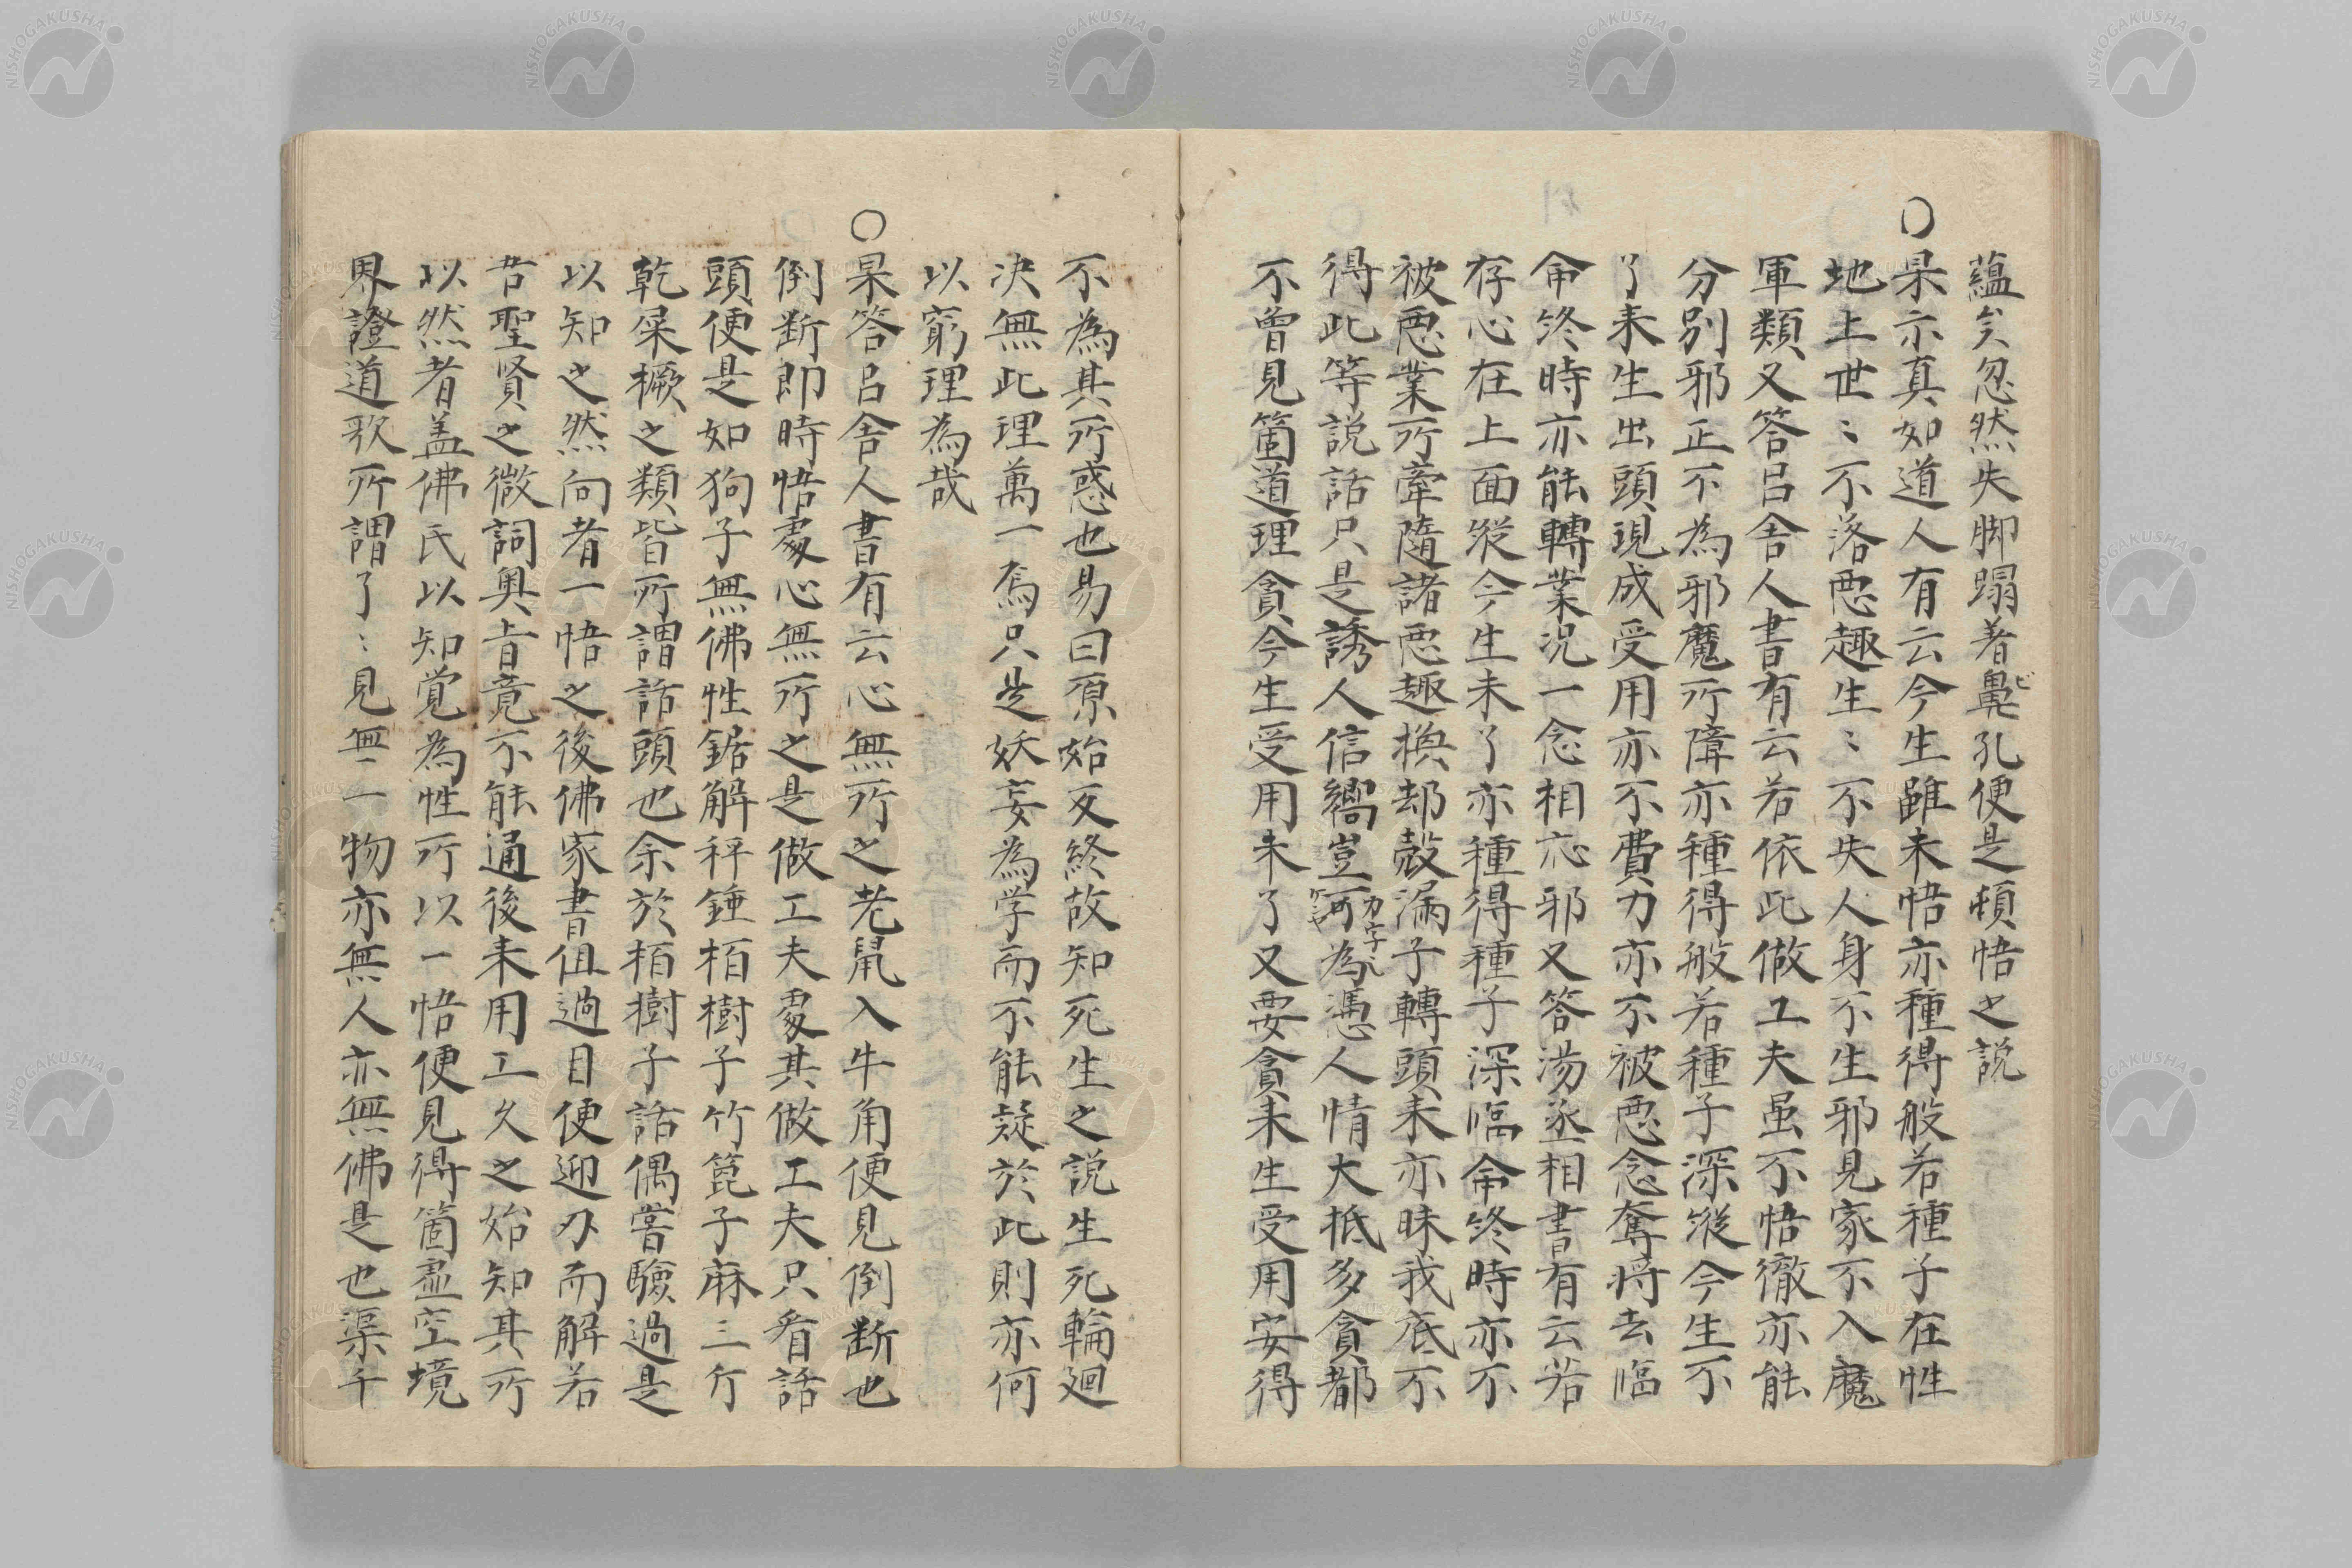 蘊矣忽然失脚蹋著鼻孔便是頓悟之説
○杲示真如道人有云今生雖未悟亦種得般若種子在性
地上世〻不落悪趣生〻不失人身不生邪見家不入魔
軍類又答呂舎人書有云若依此做工夫虽不悟徹亦能
分別邪正不為邪魔所障亦種得般若種子深縦今生不
了来生出頭現成受用亦不費力亦不被悪念奪将去臨
命終時亦能轉業況一念相応邪又答湯丞相書有云若
存心在上面縦今生未了亦種得種子深臨命終時亦不
被悪業所牽隨諸悪趣換却殻漏子轉頭来亦昧我底不
得此等説話只是誘人信嚮豈可為憑人情大抵多貪都
不曽見箇道理貪今生受用未了又要貪来生受用安得
不為其所惑也易曰原始反終故知死生之説生死輪廻
决無此理萬一焉只是妖妄為学而不能疑於此則亦何
以窮理為哉
○杲答呂舎人書有云心無所之老鼠入牛角便見倒断也
倒断即時悟處心無所之是做工夫處其做工夫只看話
頭便是如狗子無佛性鋸解秤錘栢樹子竹篦子麻三斤
乾屎橛之類皆所謂話頭也余於栢樹子話偶嘗驗過是
以知之然向者一悟之後佛家書但過目便迎刃而解若
昔聖賢之微詞奥旨竟不能通後来用工久之始知其所
以然者盖佛氏以知覚為性所以一悟便見得箇虚空境
界證道歌所謂了〻見無一物亦無人亦無佛是也渠千